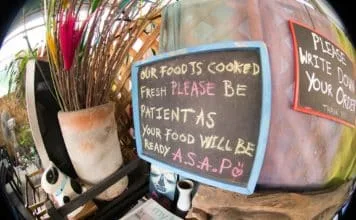 OUR FOOD IS COOKED
FRESH PLEASE BE
PATIENT AS
YOUR FOOD WILL BE
READY A.S.A.P
PLEASE
WRITE DOWN
YOUR ORDER